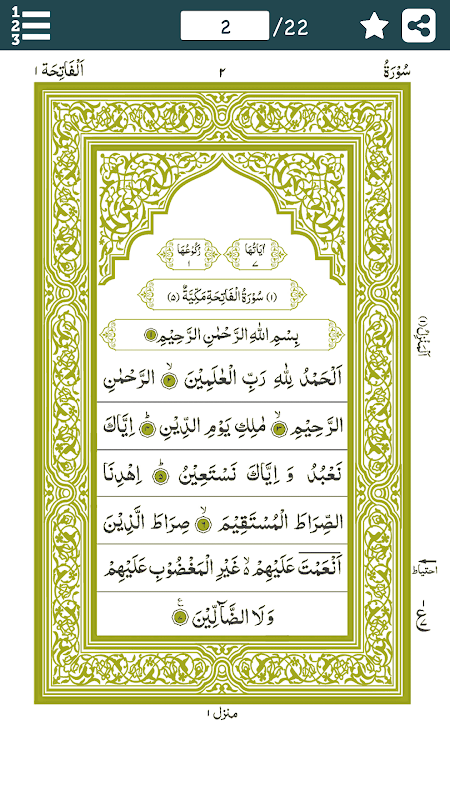 1
2
3
2 /22
سُوْرَةُ ٢ اَلْفَاتِحَة ١
اٰيَاتُهَا ٧ رُكُوْعُهَا ١
(١) سُوْرَةُ الْفَاتِحَةِ مَكِّيَّةٌ (٥)
بِسْمِ اللّٰهِ الرَّحْمٰنِ الرَّحِيْمِ ١
اَلْحَمْدُ لِلّٰهِ رَبِّ الْعٰلَمِيْنَ ۙ ٢ الرَّحْمٰنِ
الرَّحِيْمِ ۙ ٣ مٰلِكِ يَوْمِ الدِّيْنِ ؕ ٤ اِيَّاكَ
نَعْبُدُ وَ اِيَّاكَ نَسْتَعِيْنُ ؕ ٥ اِهْدِنَا
الصِّرَاطَ الْمُسْتَقِيْمَ ۙ ٦ صِرَاطَ الَّذِيْنَ
اَنْعَمْتَ عَلَيْهِمْ ۙ۬ غَيْرِ الْمَغْضُوْبِ عَلَيْهِمْ
وَلَا الضَّآلِّيْنَ ٧
اَلْمَنْزِلُ (١)
احتیاط
ع
منزل ١